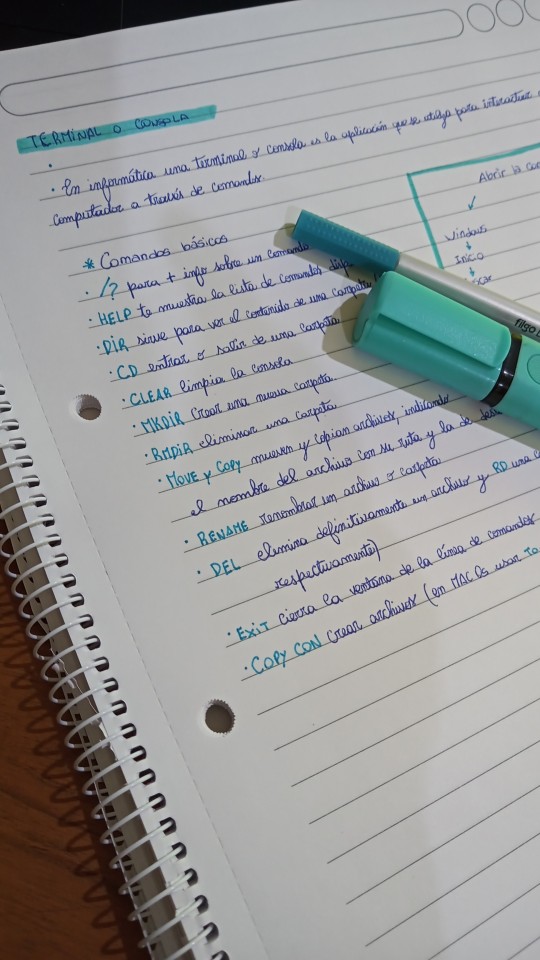 TERMINAL O CONSOLA
· En informática una terminal o consola es la aplicación que se utiliza para interactuar
computador a través de comandos.
Abrir la
Windows
Inicio
* Comandos básicos
· /? para + info sobre un comando
· HELP te muestra la lista de comandos
· DIR sirve para ver el contenido de una carpeta
· CD entrar o salir de una carpeta
· CLEAR limpia la consola
· MKDIR crear una nueva carpeta
· RMDIR eliminar una carpeta
· MOVE y COPY mueven y copian archivos, indicando
el nombre del archivo con su ruta y la de
· RENAME renombrar un archivo o carpeta
· DEL elimina definitivamente un archivo y RD una
respectivamente)
· EXIT cierra la ventana de la línea de comandos
· COPY CON crear archivos (en MAC OS usar
filgo